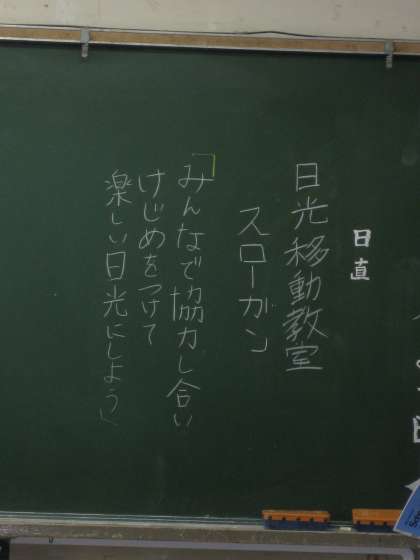 日直
日光移動教室
スローガン
「みんなで協力し合い
けじめをつけて
楽しい日光にしよう」